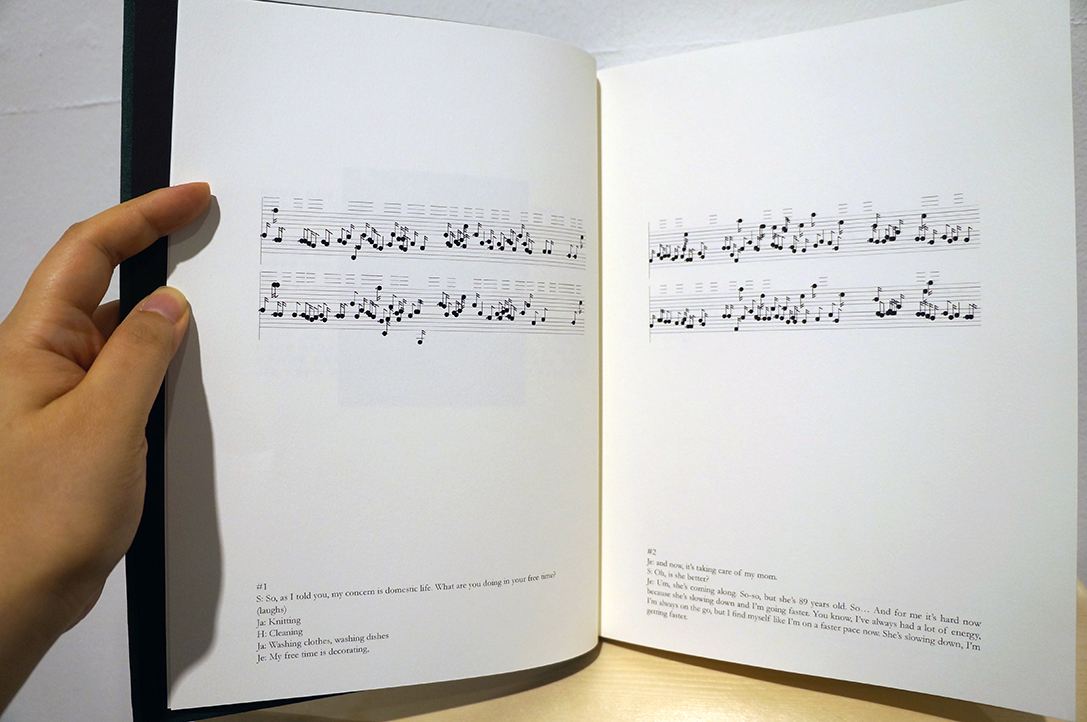 #1
S: So, as I told you, my concern is domestic life. What are you doing in your free time?
(laughs)
Ja: Knitting
H: Cleaning
Ja: Washing clothes, washing dishes
Je: My free time is decorating,
#2
Je: and now, it's taking care of my mom.
S: Oh, is she better?
Je: Um, she's coming along. So-so, but she's 89 years old. So… And for me it's hard now
because she's slowing down and I'm going faster. You know, I've always had a lot of energy,
I'm always on the go, but I find myself like I'm on a faster pace now. She's slowing down, I'm
getting faster.